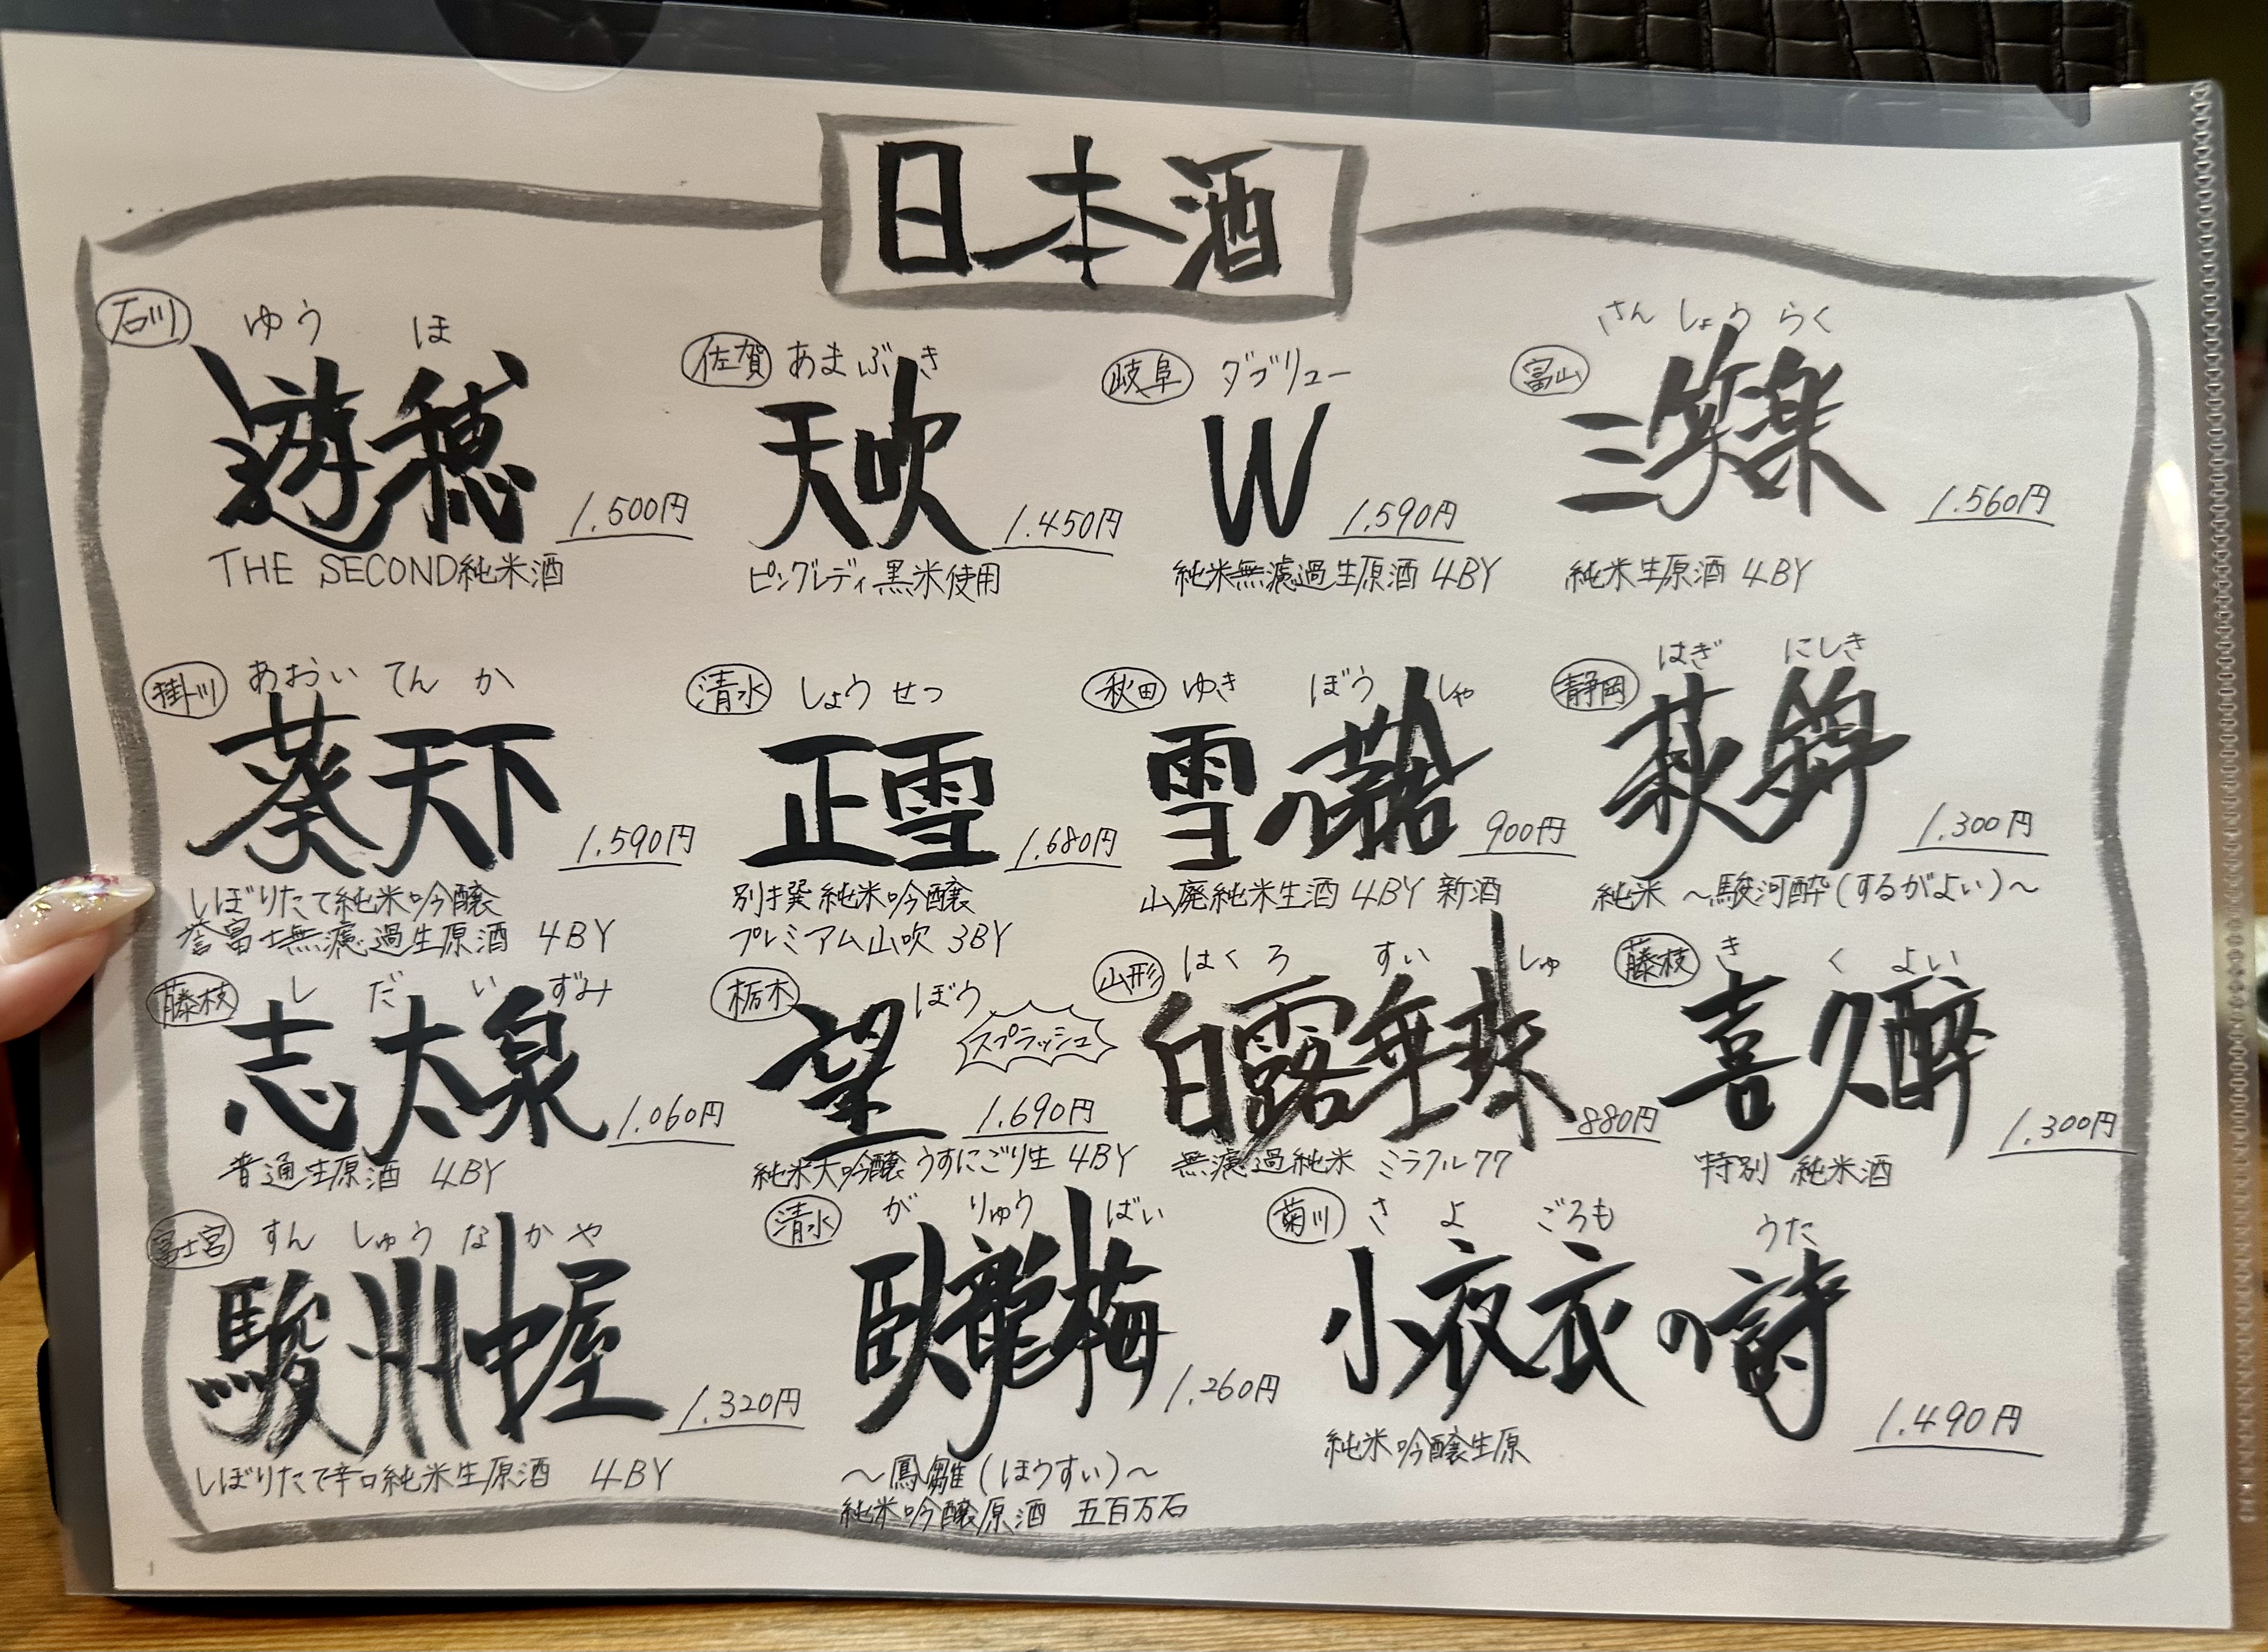 日本酒
石川
ゆうほ
遊穂
1.500円
THE SECOND純米酒
佐賀
あまぶき
天吹
1.450円
ピンクレディ黒米使用
岐阜
ダブリュー
W
1.590円
純米無濾過生原酒 4BY
富山
さんしょうらく
三笑楽
1.560円
純米生原酒 4BY
掛川
あおいてんか
葵天下
1.590円
しぼりたて純米吟醸
誉富士無濾過生原酒 4BY
清水
しょうせつ
正雪
1.680円
別撰 純米吟醸
プレミアム山吹 3BY
秋田
ゆきぼうしゃ
雪の茅舎
900円
山廃純米生酒 4BY 新酒
静岡
はぎにしき
萩錦
1.300円
純米 ～駿河酔(するがよい)～
藤枝
しだいずみ
志太泉
1.060円
普通生原酒 4BY
栃木
ぼう
望
スプラッシュ
1.690円
純米大吟醸 うすにごり生 4BY
山形
はくろすいしゅ
白露垂珠
880円
無濾過純米 ミラクル77
藤枝
きくよい
喜久酔
1.300円
特別 純米酒
富士宮
すんしゅうなかや
駿州中屋
1.320円
しぼりたて辛口純米生原酒 4BY
清水
がりゅうばい
臥龍梅
1.260円
～鳳雛(ほうすい)～
純米吟醸原酒 五百万石
菊川
さよごろもうた
小夜衣の詩
1.490円
純米吟醸生原